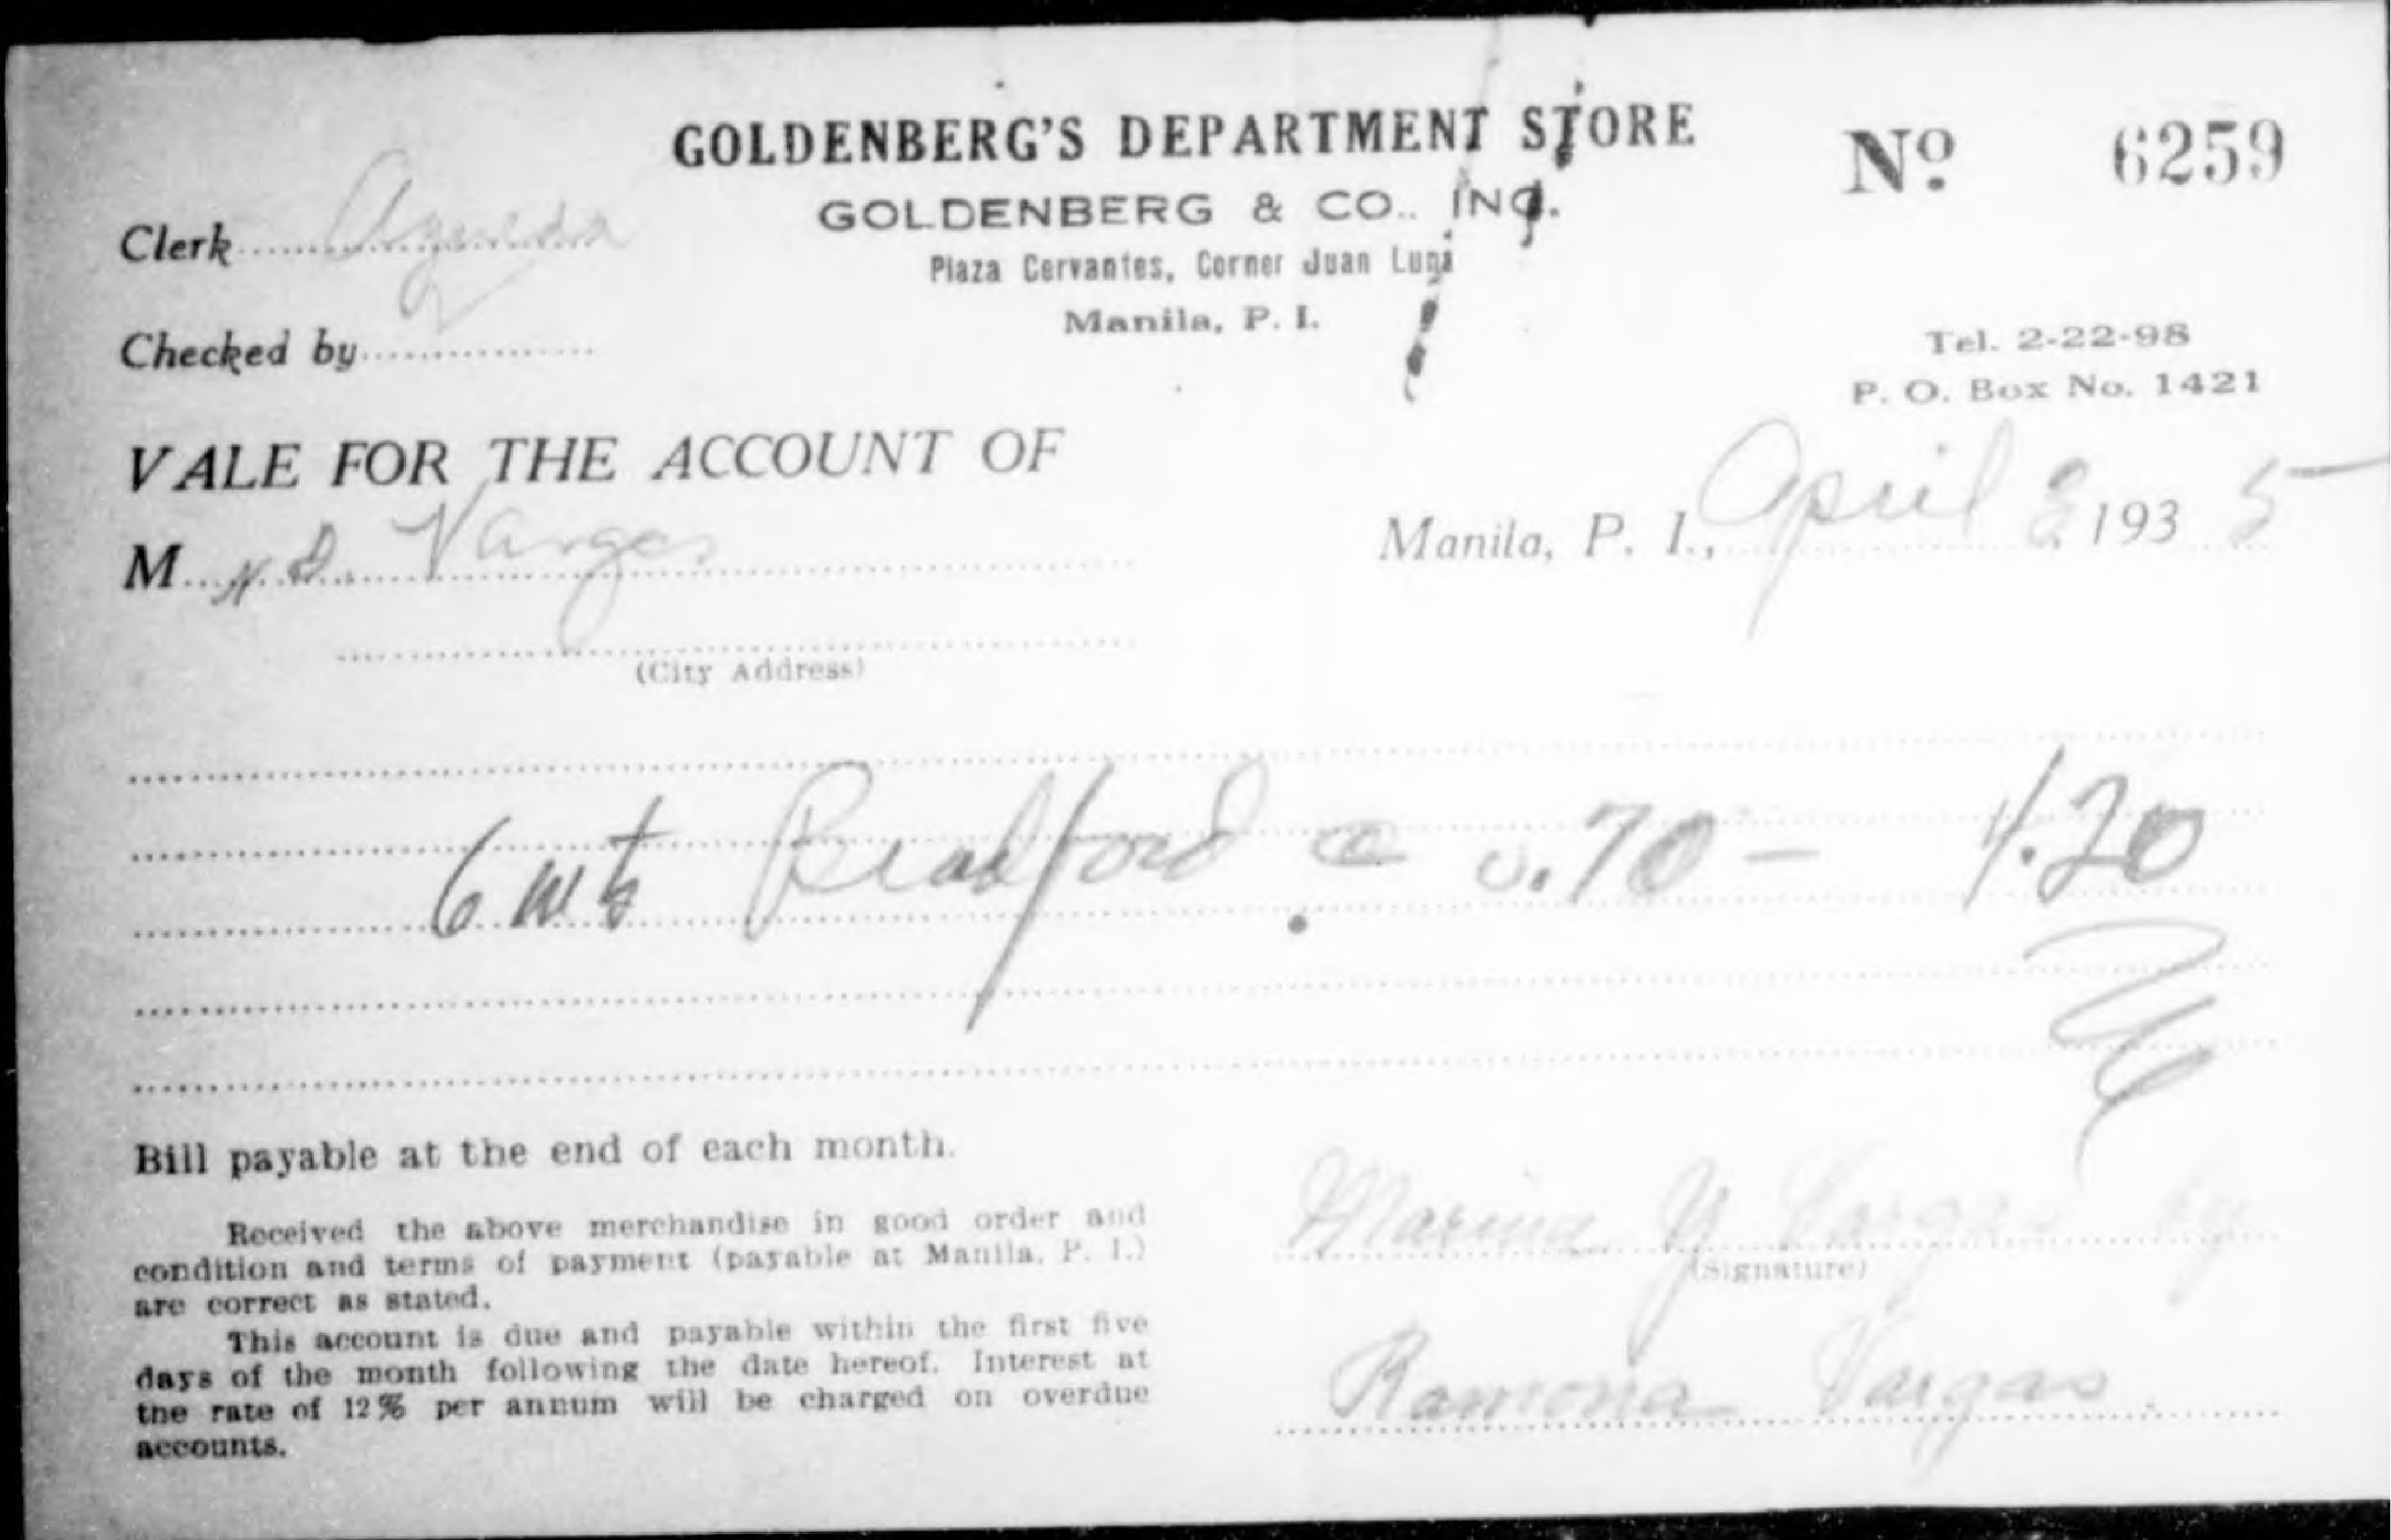 GOLDENBERG'S DEPARTMENT STORE
Nº 6259
GOLDENBERG & CO., INC.
Clerk Agueda
Plaza Cervantes, Corner Juan Luna
Manila, P. I.
Checked by
Tel. 2-22-98
P. O. Box No. 1421
VALE FOR THE ACCOUNT OF
M Vargas
Manila, P. I., April 1935
(City Address)
6 mts Bradford @ 0.70 — 4.20
Bill payable at the end of each month.
Received the above merchandise in good order and
condition and terms of payment (payable at Manila, P. I.)
are correct as stated.
This account is due and payable within the first five
days of the month following the date hereof. Interest at
the rate of 12% per annum will be charged on overdue
accounts.
Marina Y Vargas by
(Signature)
Ramona Vargas.